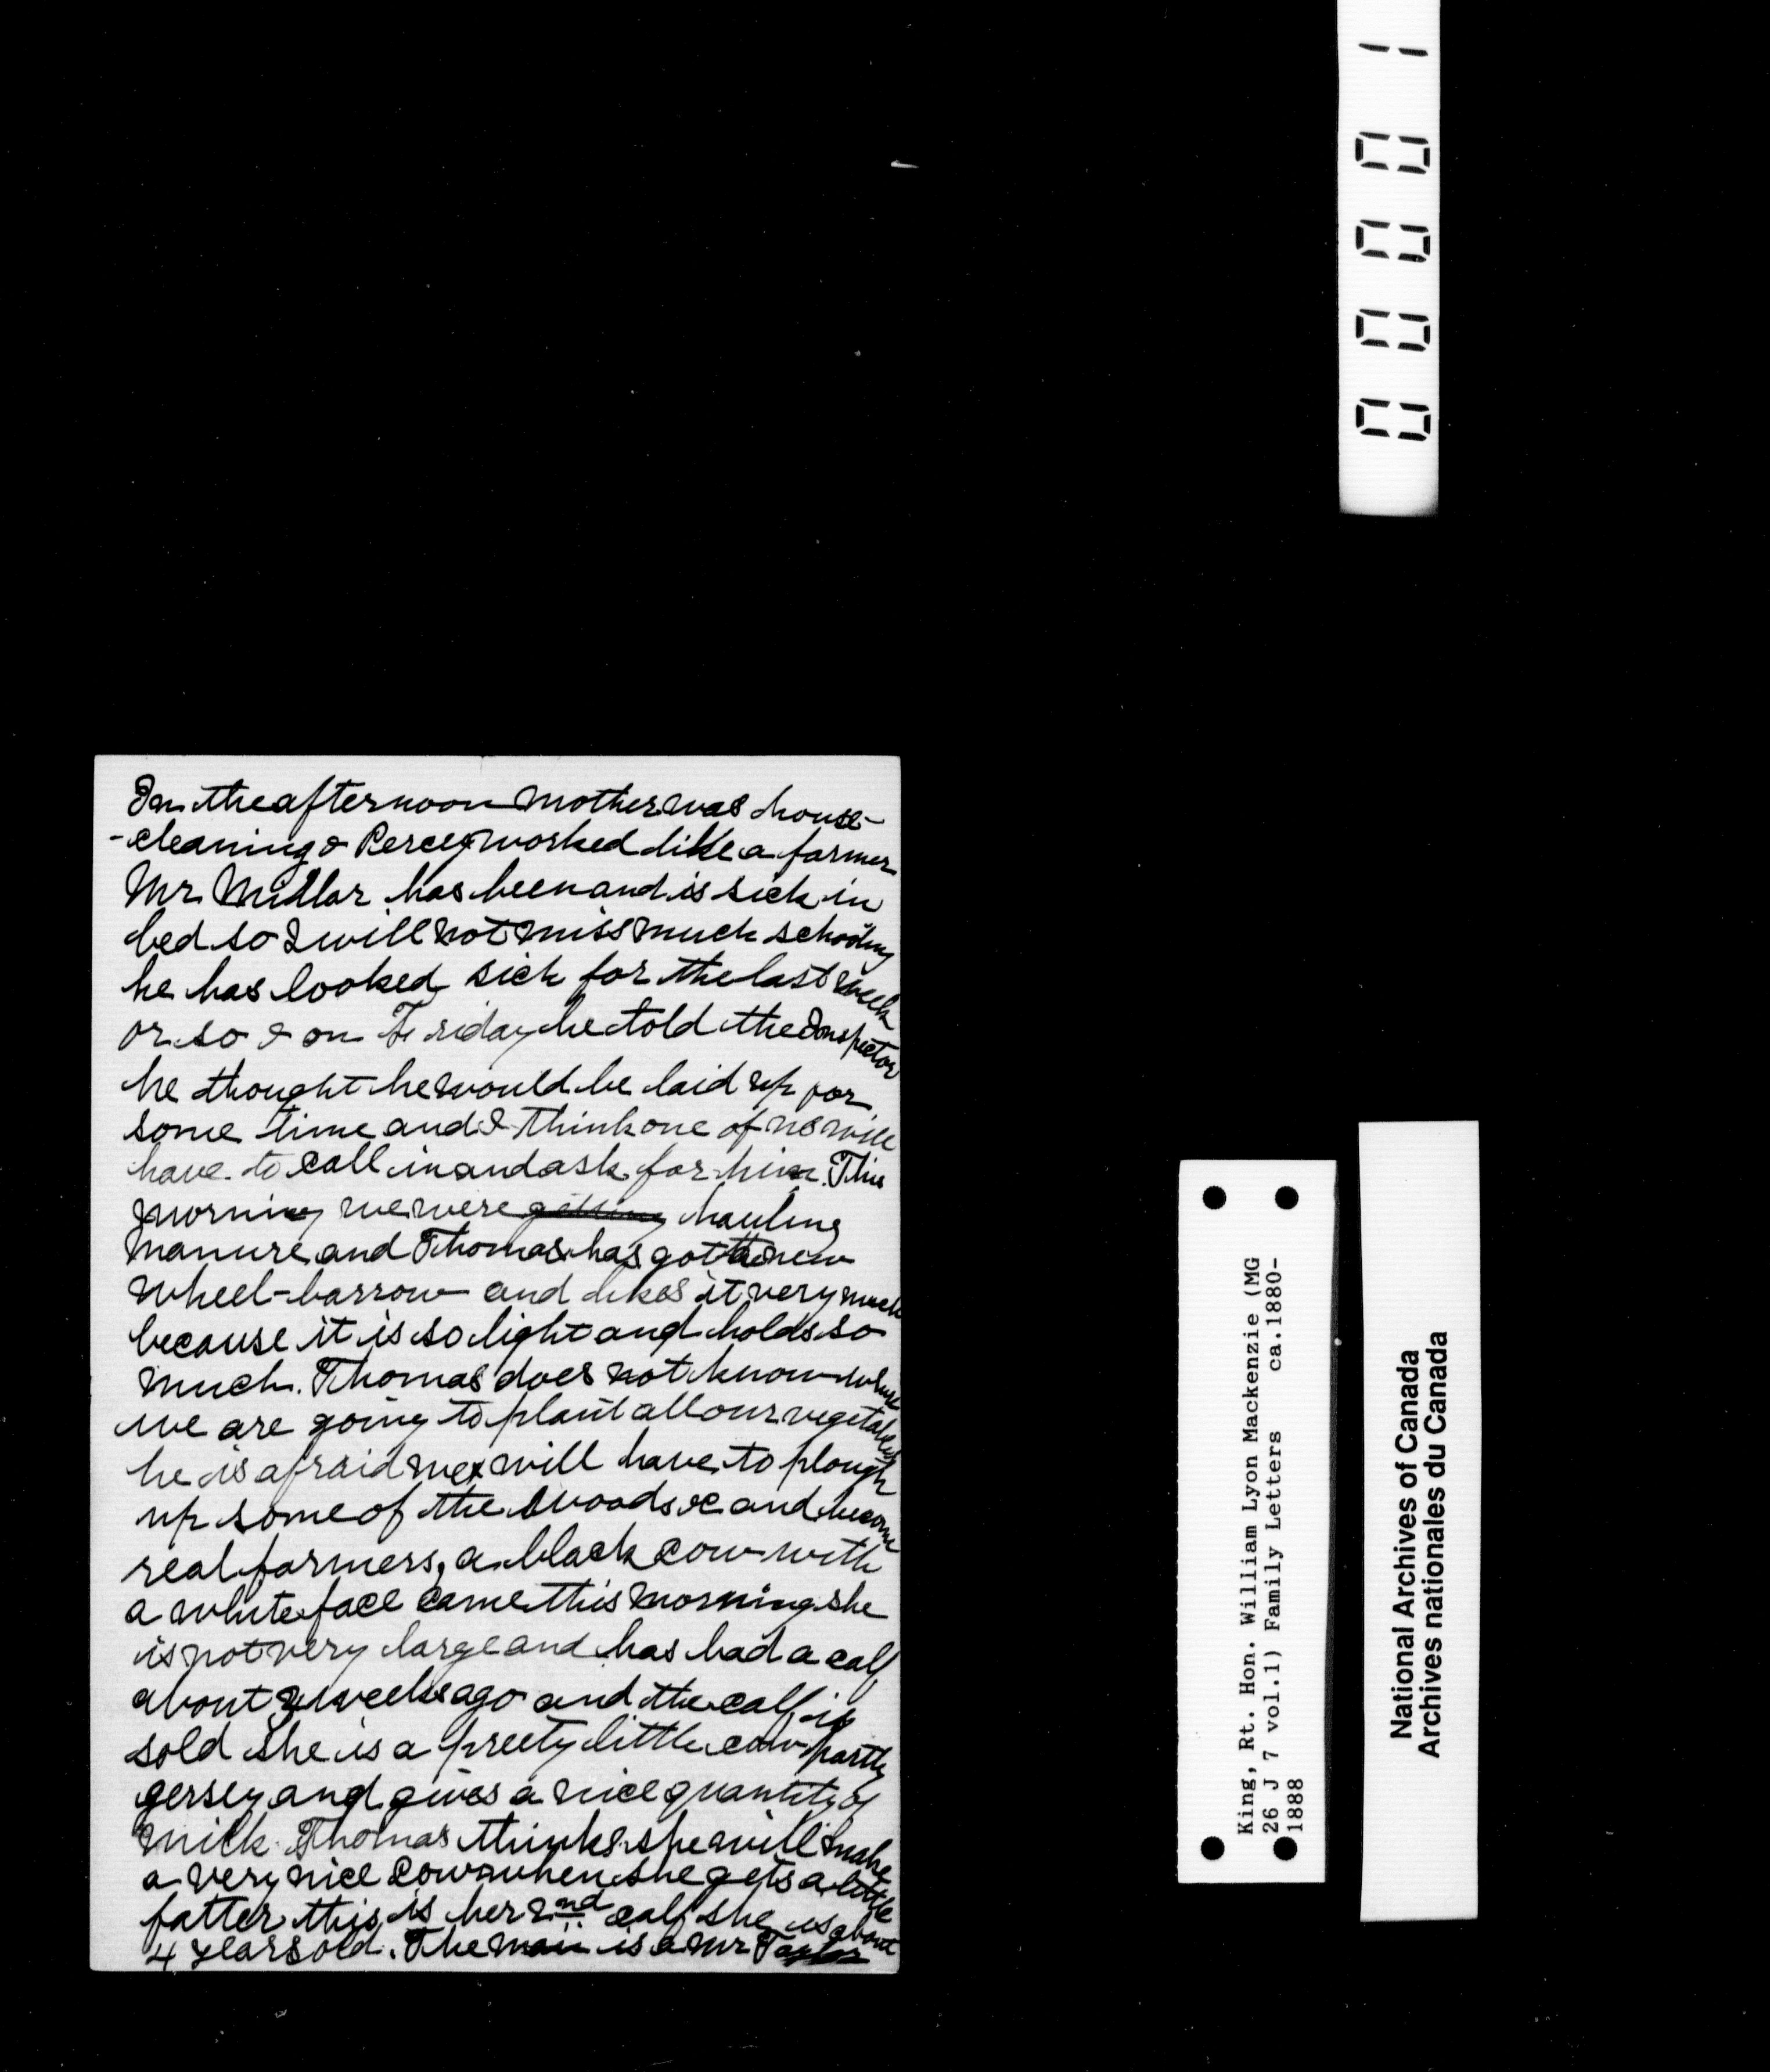 In the afternoon Mother was house-
-cleaning & Percy worked like a farmer
Mr Millar has been and is sick in
bed so I will not miss much schooling
he has looked sick for the last week
or so & on Friday he told the Inspector
he thought he would be laid up for
some time and I think one of us will
have to call in and ask for him. This
morning we were getting hauling
manure and Thomas has got the new
wheel-barrow and likes it very much
because it is so light and holds so
much. Thomas does not know where
we are going to plant all our vegetables
he is afraid we will have to plough
up some of the woods &c and become
real farmers, a black cow with
a white face came this morning she
is not very large and has had a calf
about 2 weeks ago and the calf is
sold she is a preety little cow partly
gersey and gives a nice quantity of
milk. Thomas thinks she will make
a very nice cow when she gets a little
fatter this is her 2nd calf she is about
4 years old. The man is a Mr Taylor
00001
King, Rt. Hon. William Lyon Mackenzie (MG
26 J 7 vol.1) Family Letters ca.1880-
1888
National Archives of Canada
Archives nationales du Canada